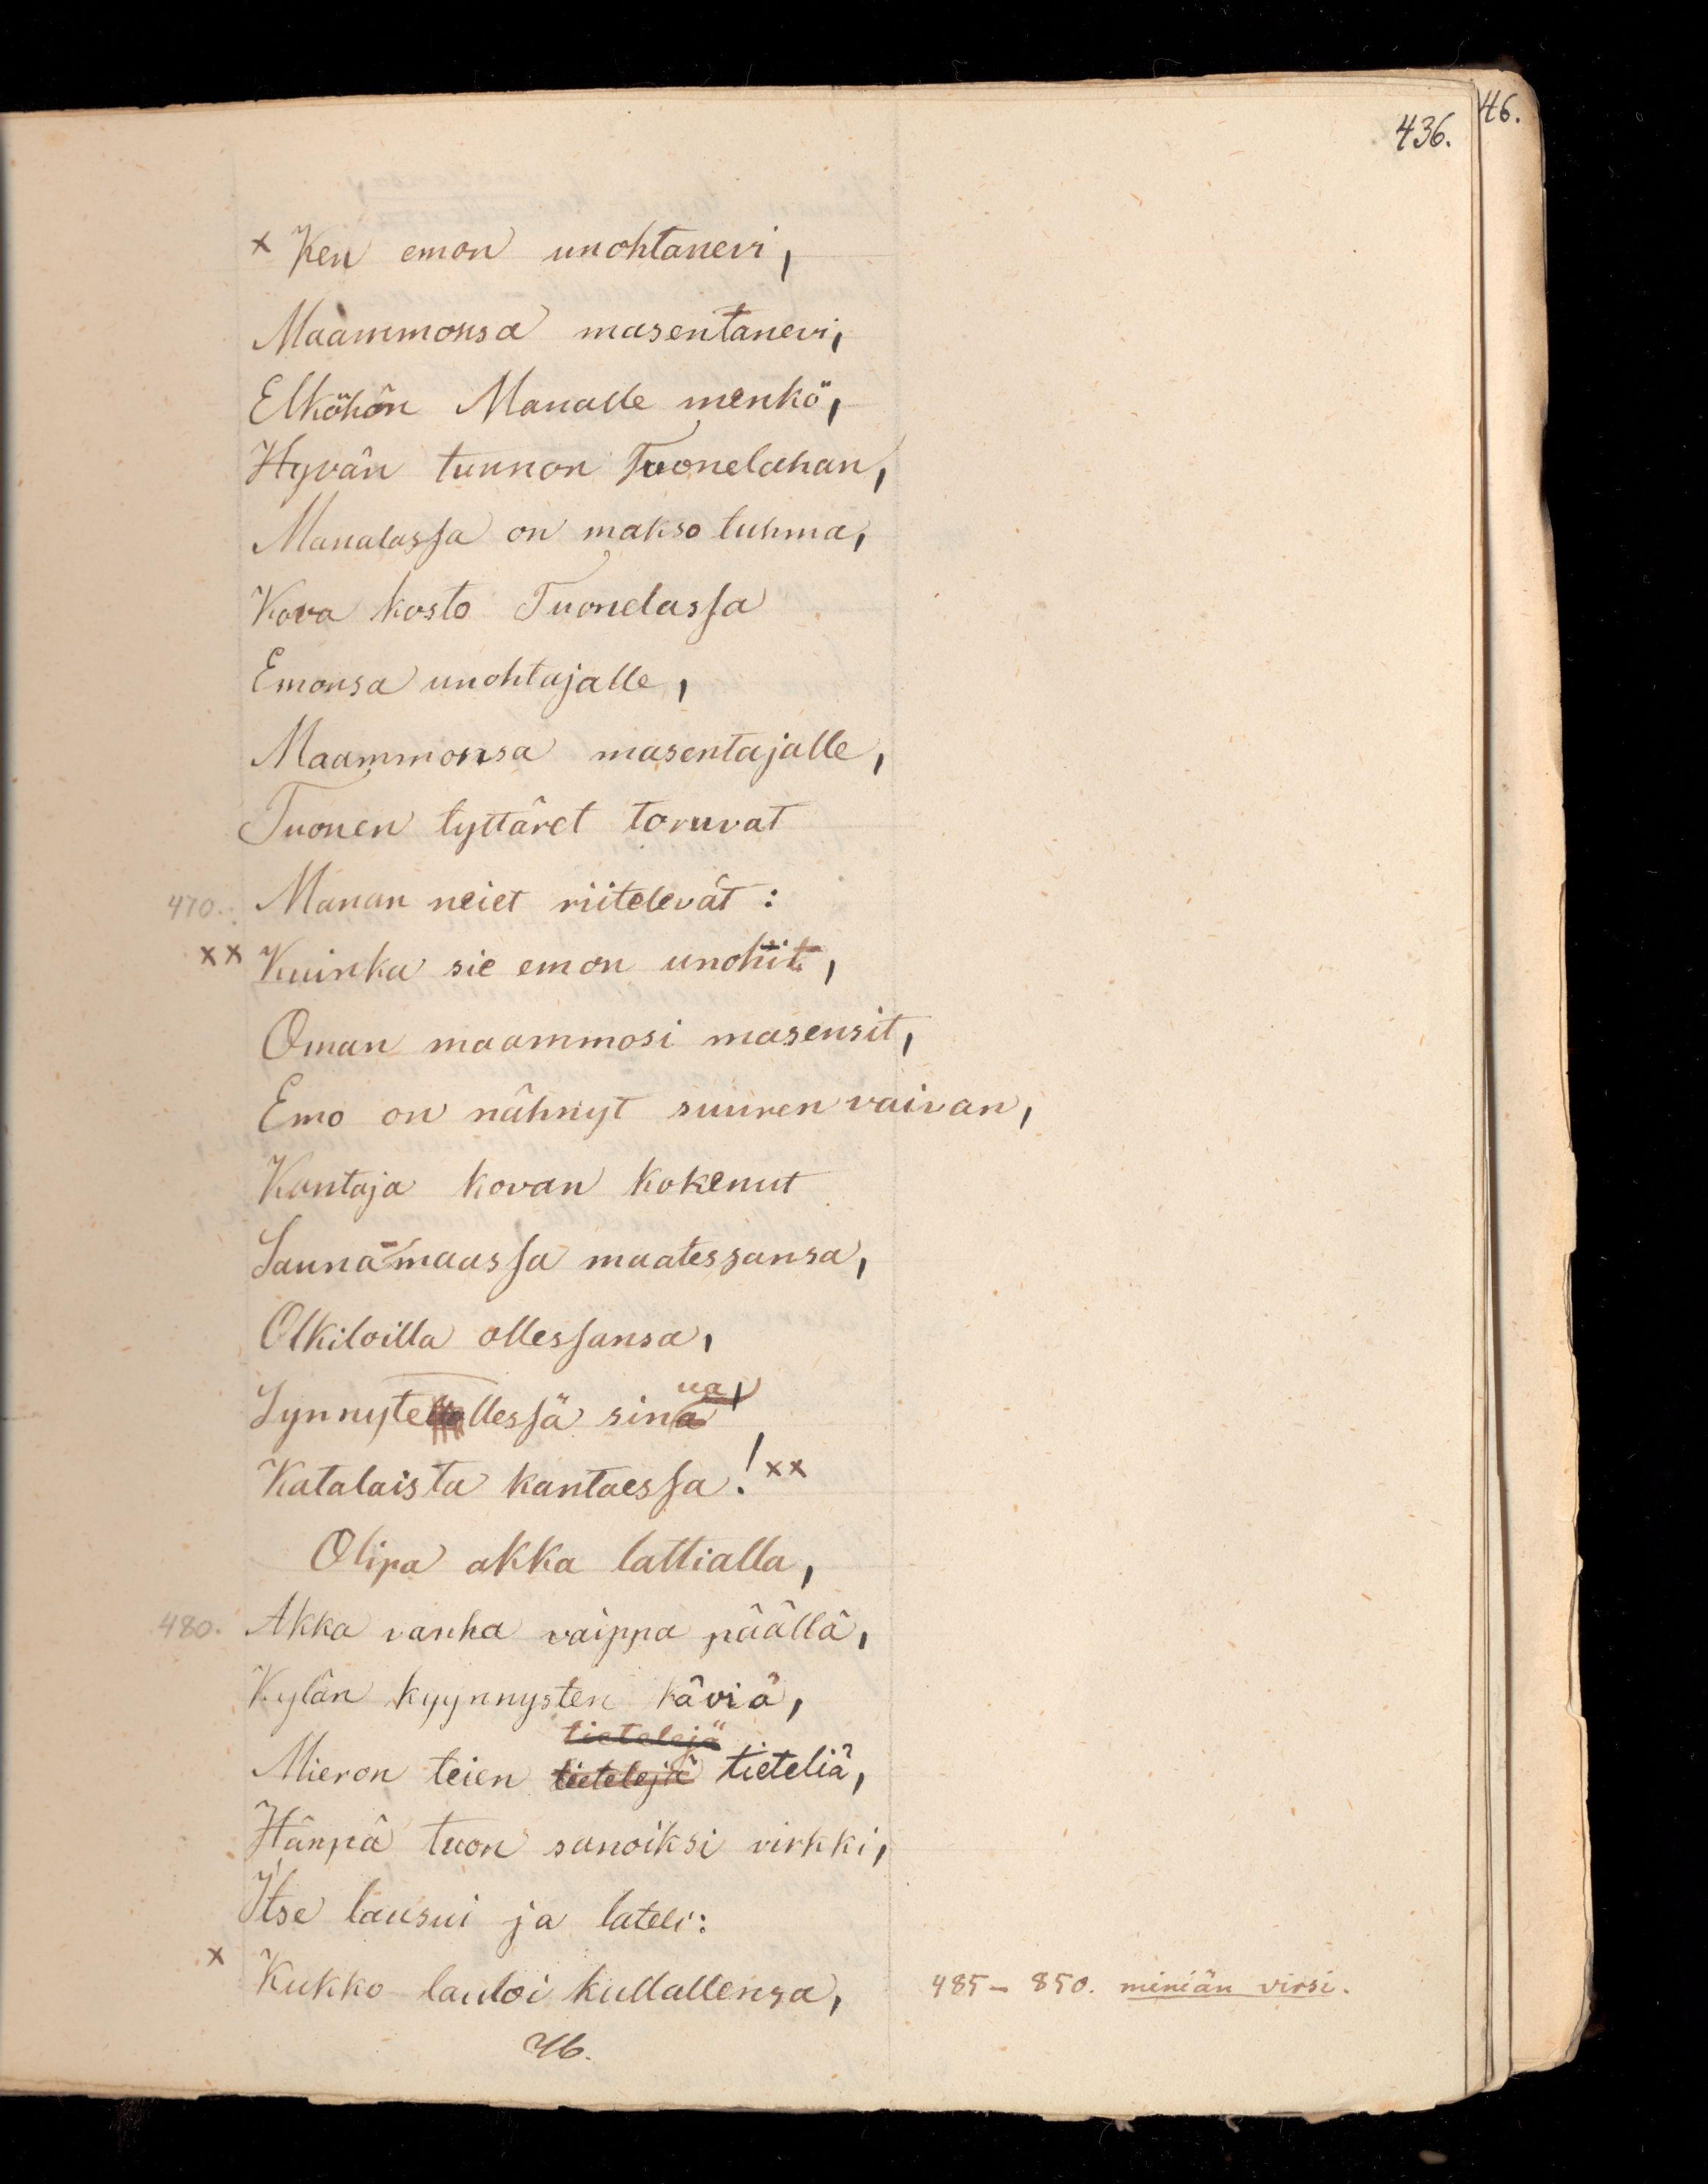 46.
436.
x Ken emon unohtanevi,
Maammonsa masentanevi,
Elköhön Manalle menkö,
Hyvän tunnon Tuonelahan,
Manalassa on makso tuhma,
Kova kosto Tuonelassa
Emonsa unohtajalle,
Maammonsa masentajalle,
Tuonen tyttäret toruvat
470. Manan neiet riitelevät:
xx Kuinka sie emon unohit,
Oman maammosi masensit,
Emo on nähnyt suuren vaivan,
Kantaja kovan kokenut
Saunamaassa maatessansa,
Olkiloilla ollessansa,
ua,
Synnytellessä sinä
Katalaista kantaessa! xx
Olipa akka lattialla,
480. Akka vanha vaippa päällä,
Kylän kyynnysten käviä,
tietelejä
Mieron teien tietelejä tieteliä,
Hänpä tuon sanoiksi virkki,
Itse lausui ja lateli:
x Kukko lauloi kullallensa, 485– 850. miniän virsi.
46.